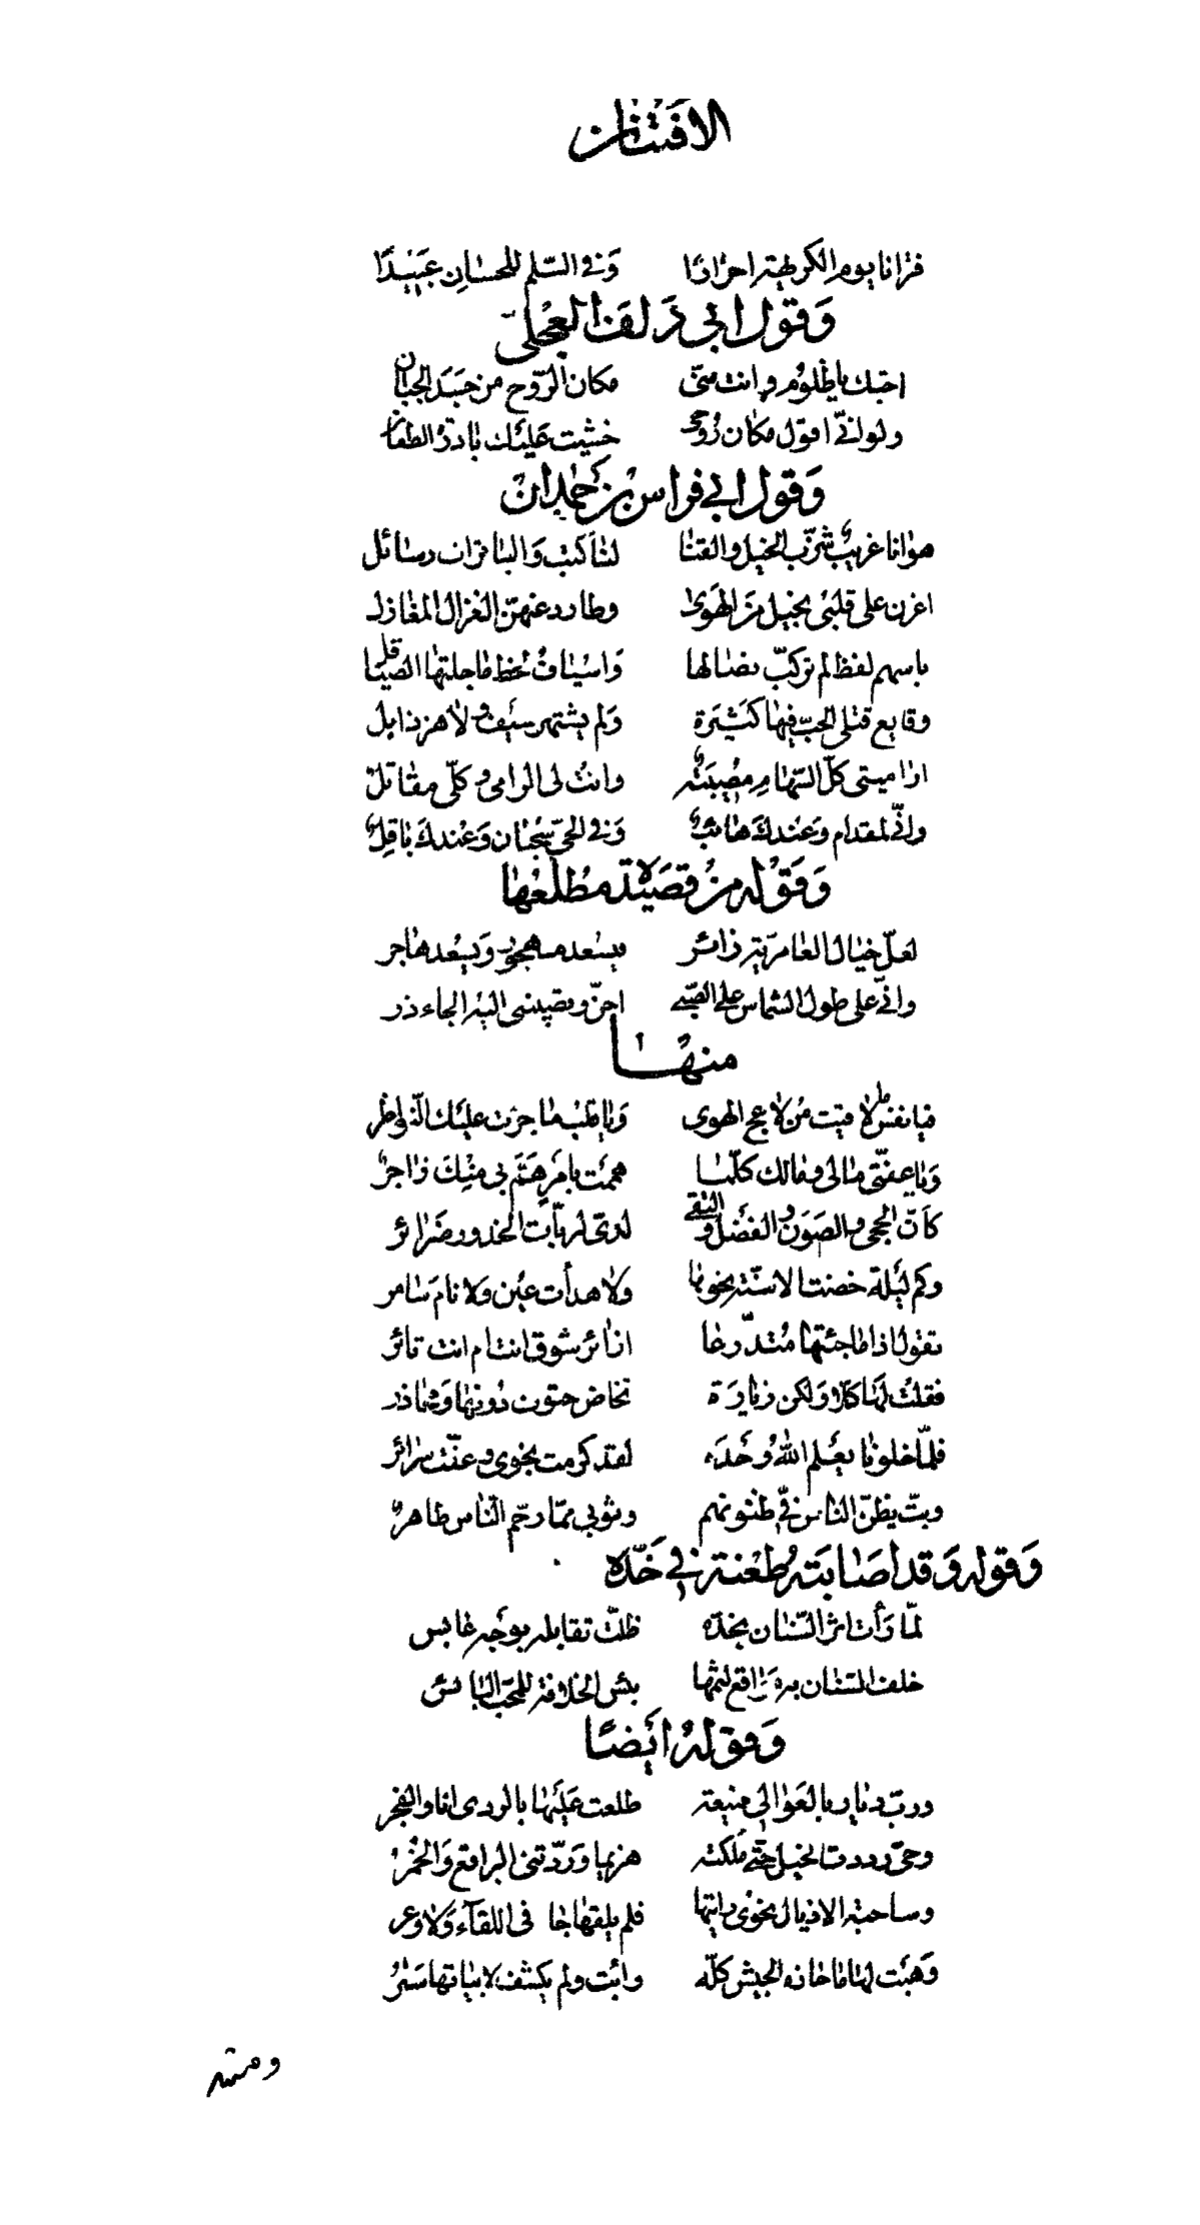 الافتنان
فترانا يوم الكريهة احرارًا وَفى السّلم للحسَانِ عَبيْدًا
وَقول ابى دَلف العجْلىّ
احبّك يا ظلُوم وانت منّى مكان الرّوح من جَسَد الجبان
ولو انّى اقول مكان رُوحى خشيت عَليْك بادرَة الطعان
وَقول ابى فراس بنْ حمَدان
هوانا غريبٌ شزّب الخيل والقنا لنا كتب وَالباترات رسائل
اغرن على قلبى بخيل منَ الهَوى وطارد عنهنّ الغزال المغازل
باسهم لفظ لم تركّب نصالها وَاسيَاف لحظ ما جلتها الصيَاقل
وقايع قتلى الحبّ فيها كثيَرة وَلم يشتهر سيْف ولا هز ذابل
اراميتى كلّ السّهام مِصُيبَةٌ وانتَ لى الرامى وكلّى مقاتلٌ
وانّى لمقدام وَعندكَ هائبٌ وَفى الحىّ سَحْبان وَعْندكَ باقِلٌ
وَقَوْله منْ قصَيْدَة مطْلعُها
لعلّ خيَال العامريّة زائر فيسْعد مهجور وَيسْعد هاجر
وانّى على طول الشماس على الصّبى احنّ وتصبينى اليْه الجاءذر
منهَا
فيا نفس ما لاقيت منْ لاعج الهوى وَيا قلب ما جرّت عليْك النّواظر
وَيا عفتّى مالى ومالك كلّما هممْت بامْرٍ هَمَّ بى منْكَ زاجرٌ
كأنّ الحجى والصَوَن والفضْل والتقى لدىّ لربّات الخدور ضَرائر
وكم ليْلة خضت الاسنّة نحوها ولا هدأت عيْن ولا نامَ سَامر
تقول اذا ما جئتها مُتدّرعا ازائر شوق انت ام انت ثائر
فقلت لهَا كَلّا وَلكن زيارَة تخاض حتوف دُونها وَمحاذر
فلمّا خلونا يعْلم اللهُ وحْدَه لقد كرمت نجوى وعفّت سرائر
وبتّ يظنّ النّاس فىّ ظنونهم وثوبى ممّا رجّم النّاس طاهرٌ
وَقوله وَقد اصَابَتْه طعْنة فى خَدّه
لمّا رَأت اثر السّنان بخدّه ظلّت تقابله بوجْه عابس
خلف السّنان به مَوَاقع لثمها بئس الخلافة للمحبّ البائس
وَقوْله ايْضًا
وربّ دار بالعَوالى منيعة طلعت عَليْها بالردى انا والفجر
وحىّ رددت الخيل حتّى ملكته هزيما وَردّتنى البراقع وَالخُمْرُ
وساحبة الاذيال نحوى رايتها فلم يلقها جا فى اللقآء وَلا وعر
وَهبْت لها ما حازه الجيش كلّه وابْت ولم يكشف لابياتها سَترُ
ومنه